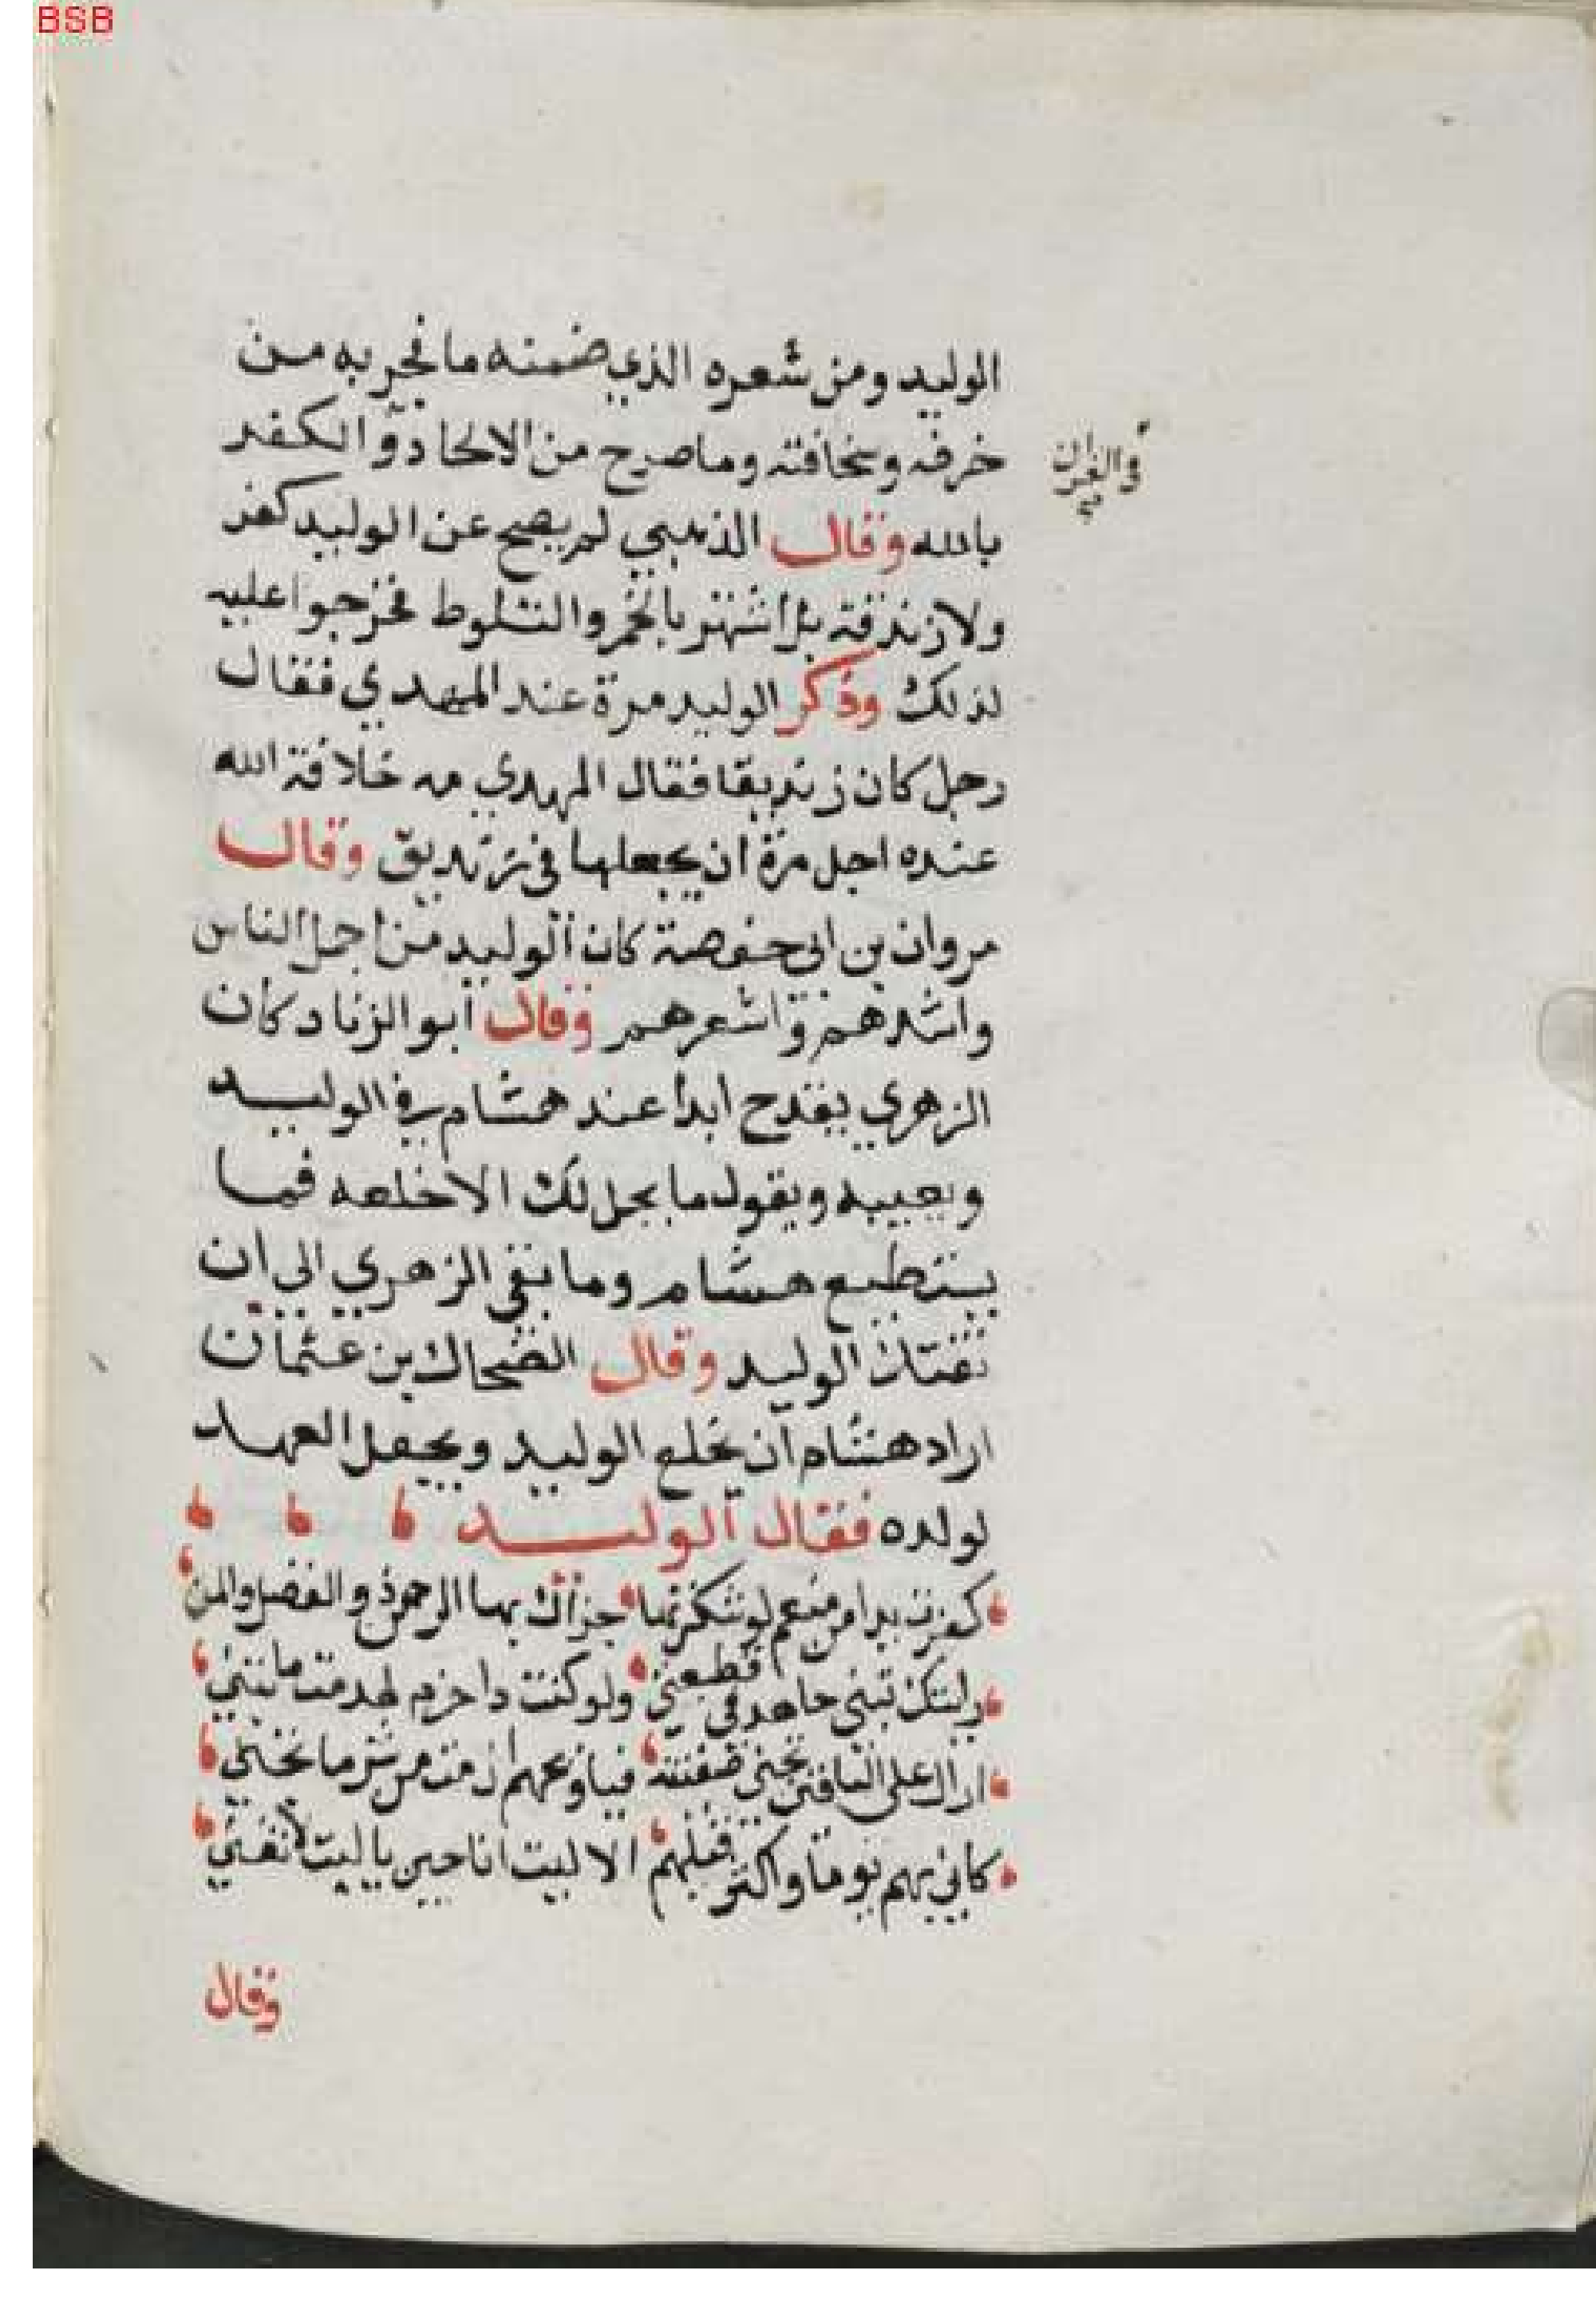 BSB
الوليد ومن شعره الذي ضمنه ما فجر به من
خرفه وسخافته وما صرح من الالحاد و الكفر
في القران
بالله وقال الذهبي لم يصح عن الوليد كفر
ولا زندقة بل اشتهر بالخمر والتلوط فخرجوا عليه
لذلك وذكر الوليد مرة عند المهدي فقال
رجل كان زنديقا فقال المهدي مه خلافة الله
عنده اجل مرة ان يجعلها في زنديق وقال
مروان بن ابي حفصة كان الوليد من اجمل الناس
واشدهم واشعرهم وقال أبو الزناد كان
الزهري يقدح ابدا عند هشام في الوليد
ويعيبه ويقول ما يحل لك الا خلعه فما
يستطيع هشام وما بقي الزهري الى ان
الوليد وقال الضحاك بن عثمان
اراد هشام ان يخلع الوليد ويجعل العهد
لولده فقال الوليد
كفرت يدا من منعم لو شكرتها جزاك بها الرحمن ذو الفضل والمن
رايتك تبني جاهدا في قطيعتي ولو كنت ذا حزم لهدمت ما تبني
اراك على الباقين تجني ضغينة فيا ويحهم ان مت من شر ما تجني
كاني بهم يوما واكثر قيلهم الا ليت انا حين يا ليت لا تغني
وقال